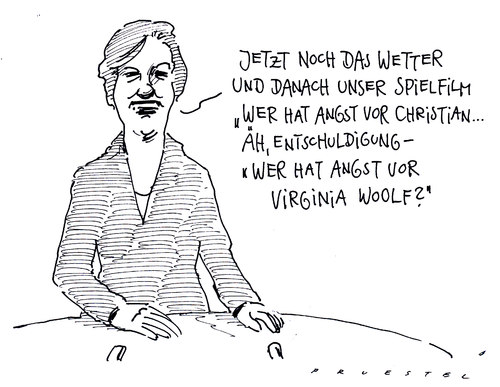 JETZT NOCH DAS WETTER
UND DANACH UNSER SPIELFILM
„WER HAT ANGST VOR CHRISTIAN...
ÄH, ENTSCHULDIGUNG –
„WER HAT ANGST VOR
VIRGINIA WOOLF?"
PRUESTEL